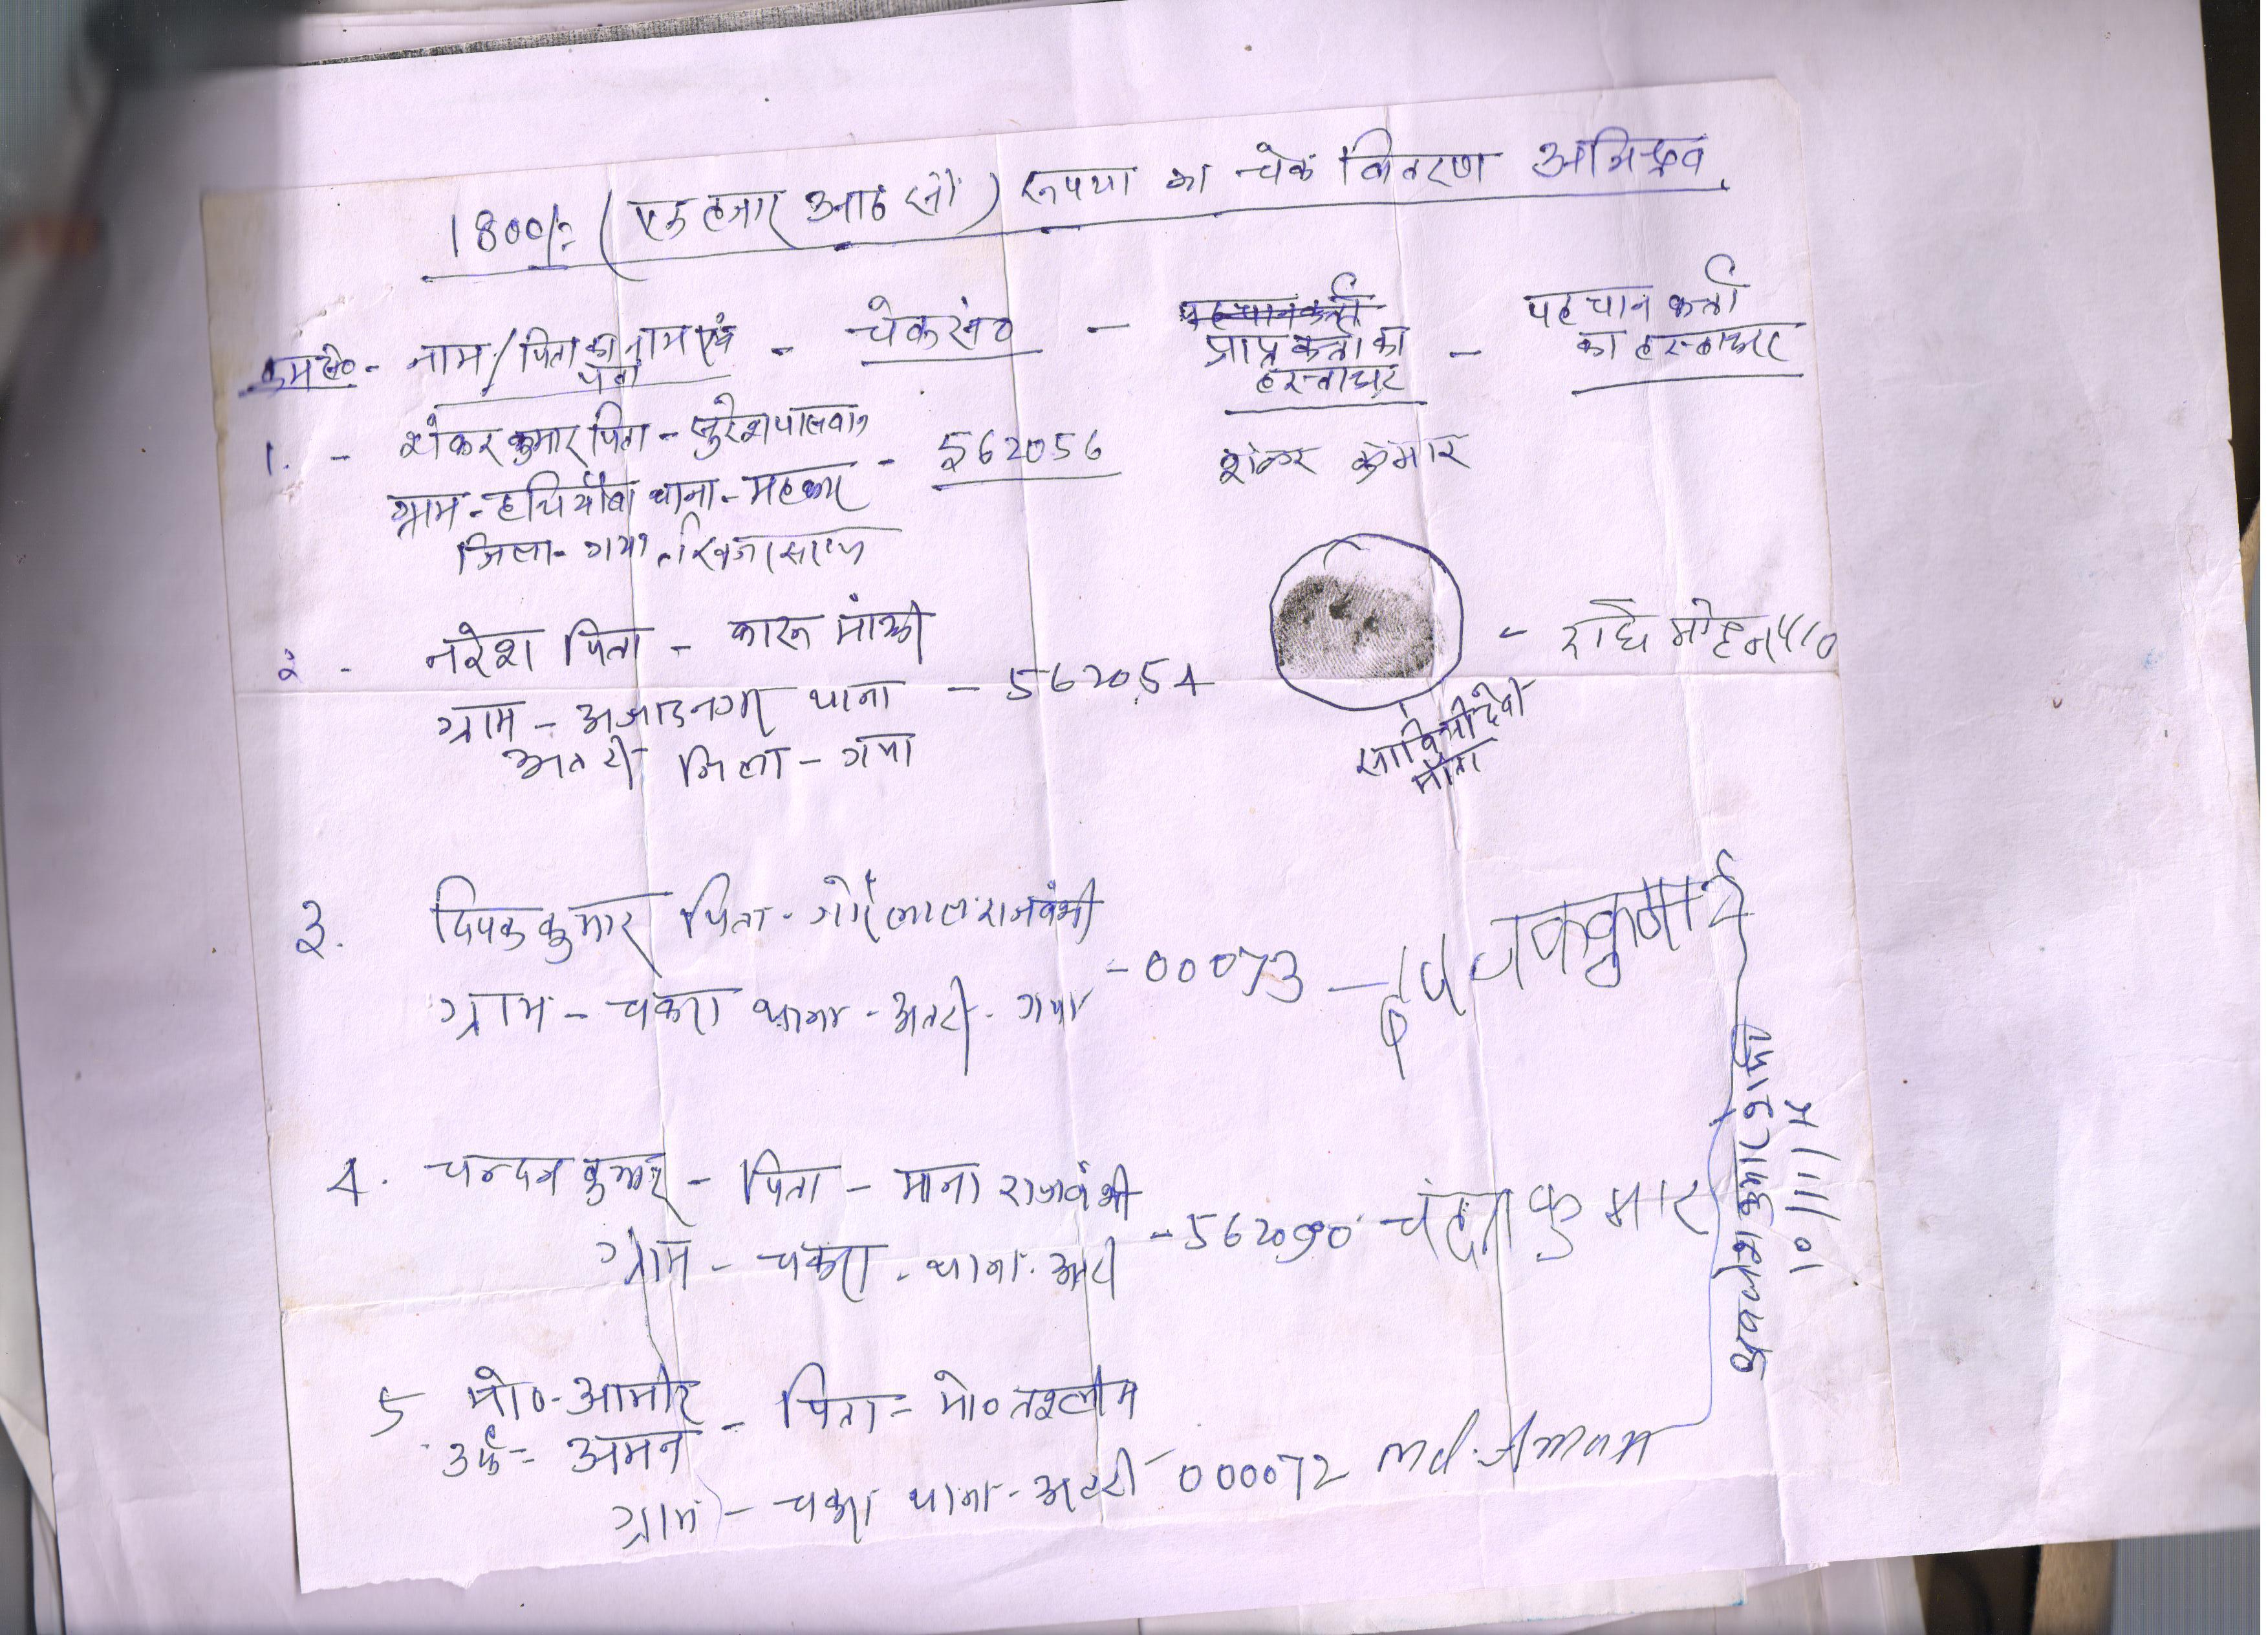 1800/= (एक हजार आठ सौ) रूपया का चेक वितरण अभिश्रव
क्रम सं० - नाम/पिता का नाम एवं पता - चेक सं० - प्राप्त कर्त्ता का हस्ताक्षर - पहचान कर्त्ता का हस्ताक्षर
1. - शंकर कुमार पिता - सुरेश पासवान
ग्राम - थाना - महकार - 562056 शंकर कुमार
जिला - गया
2 - नरेश पिता - कारू मांझी
ग्राम - अजादनगर थाना - 562054 - राधे मोहन
अतरी जिला - गया
सावित्री देवी
माता
3. दिपक कुमार पिता - गोरे लाल राजवंशी
ग्राम - चकरा थाना - अतरी - गया - 00073 - दिपक कुमार
4. चन्दन कुमार - पिता - माना राजवंशी
ग्राम - चकरा - थाना - अतरी - 562090 चंदन कुमार
5 मो० - आमीर - पिता = मो० तश्लीम
उर्फ = अमन
ग्राम - चकरा थाना - अतरी 000072 Md. Aman